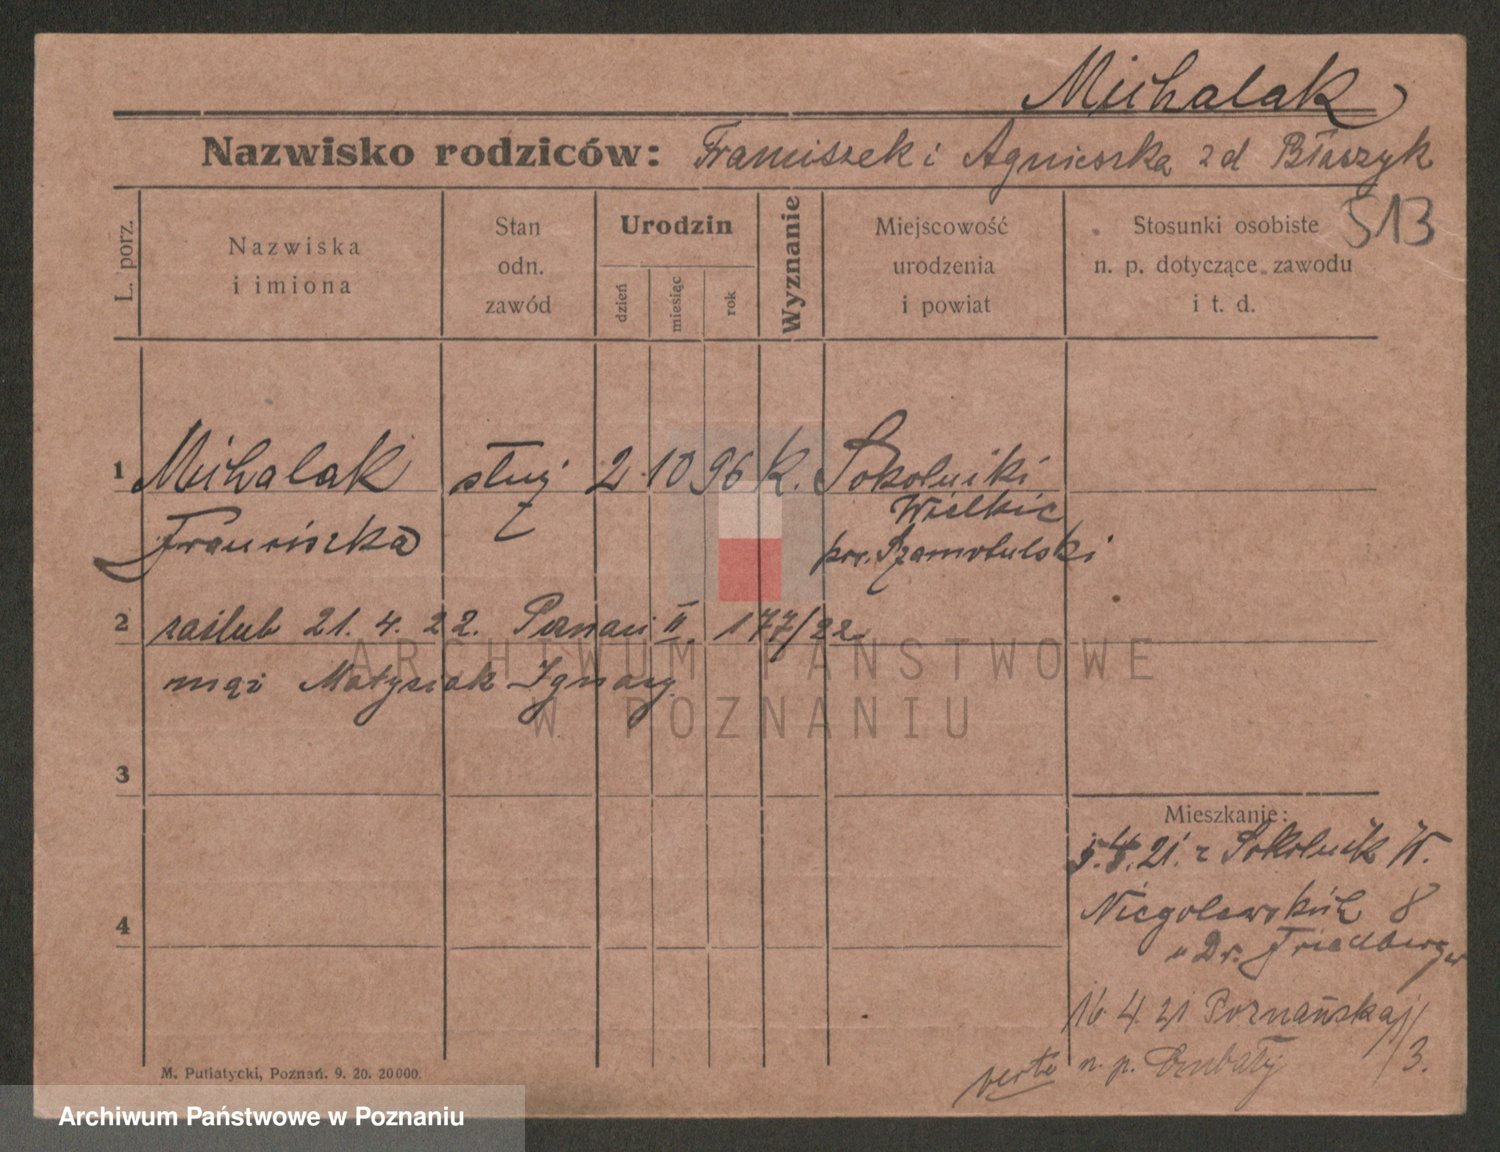 Michalak
Nazwisko rodziców: Franciszek i Agnieszka zd Błaszyk
513
L. porz.
Nazwiska
i imiona
Stan
odn.
zawód
Urodzin
dzień
miesiąc
rok
Wyznanie
Miejscowość
urodzenia
i powiat
Stosunki osobiste
n. p. dotyczące zawodu
i t. d.
1 Michalak służ 2 10 96 k. Sokolniki
Wielkie
Franciszka pow. Szamotulski
2 zaślub 21. 4. 22. Poznań II. 177/22
mąż Matysiak Ignacy
ARCHIWUM PAŃSTWOWE
W POZNANIU
3
Mieszkanie:
5.4.21. z Sokolnik W.
4
Niegolewskich 8
u Dr. Friedberger
16 4 21 Poznańska
n. p.
3.
verte
M. Putiatycki, Poznań. 9. 20. 20000.
Archiwum Państwowe w Poznaniu